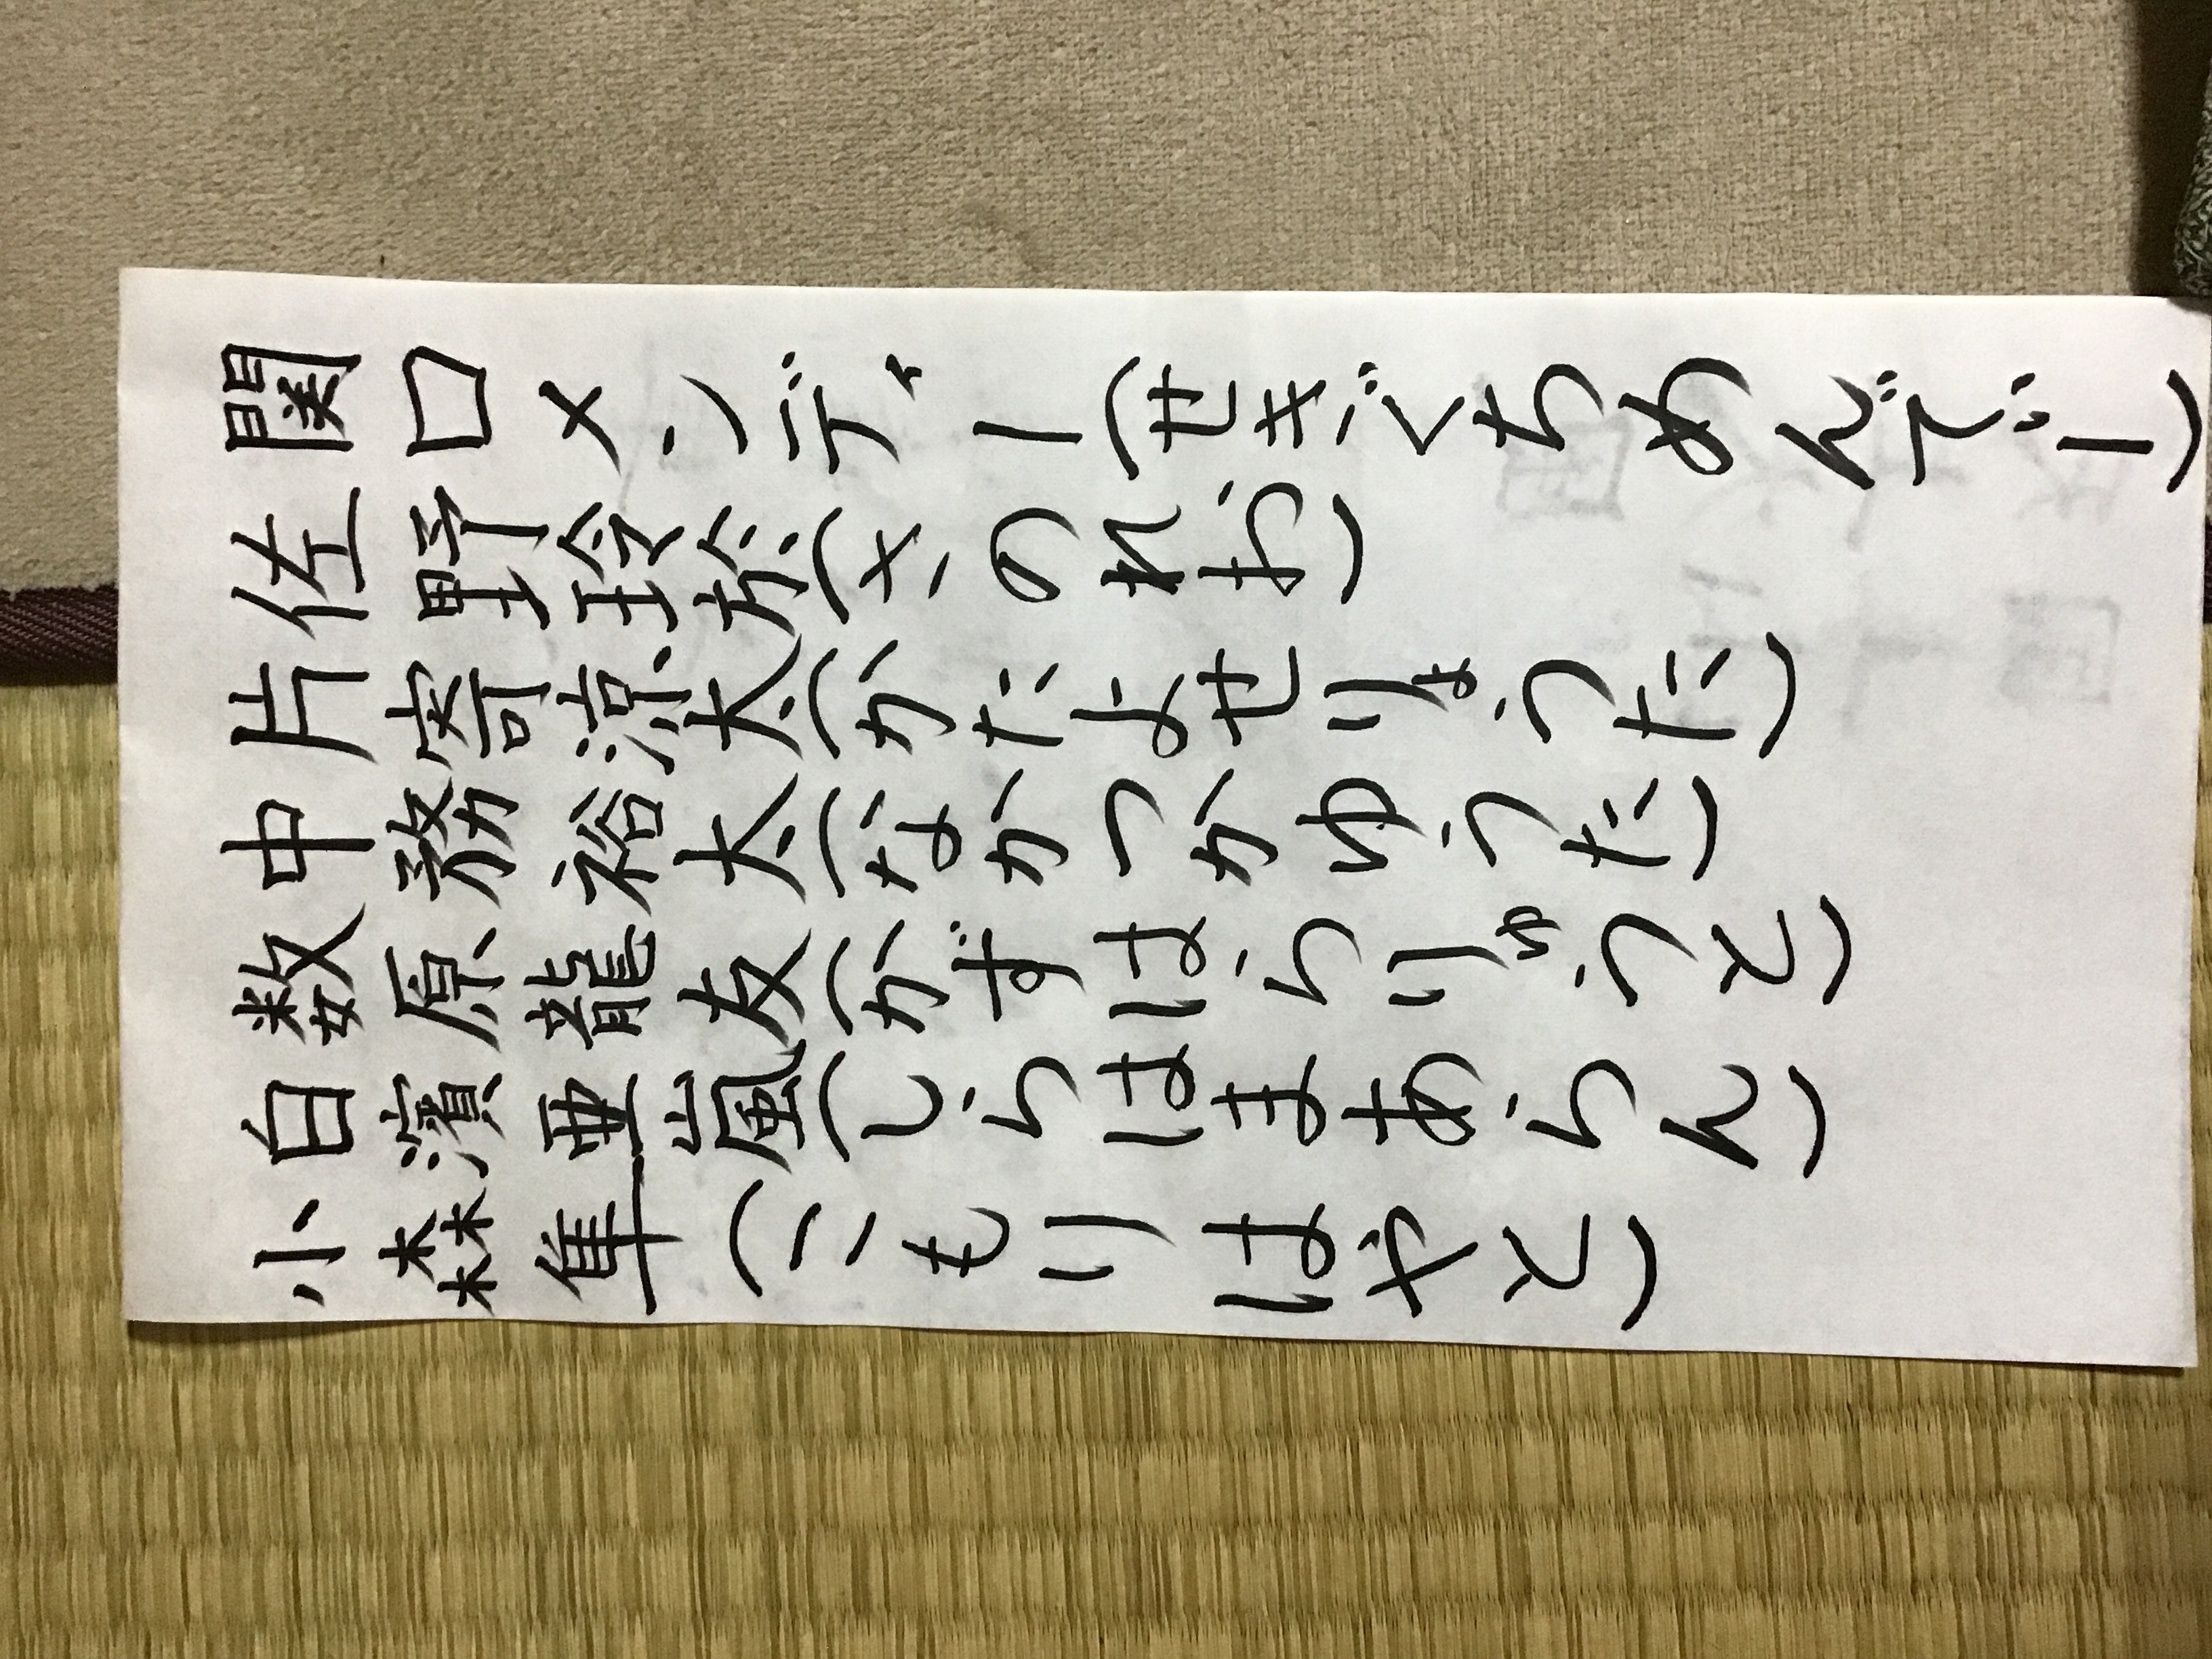 関口メンディー(せきぐちめんでぃー)
佐野玲於(さのれお)
片寄涼太(かたよせりょうた)
中務裕太(なかつかゆうた)
数原龍友(かずはらりゅうと)
白濱亜嵐(しらはまあらん)
小森隼(こもりはやと)